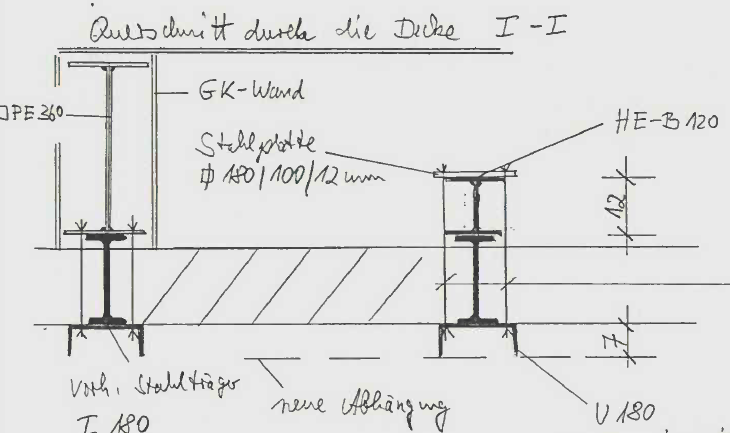 Querschnitt durch die Decke I-I
IPE 360
GK-Wand
HE-B 120
Stahlplatte
⌀ 180/100/12 mm
12
7
vorh. Stahlträger
I 180
neue Abhängung
U 180